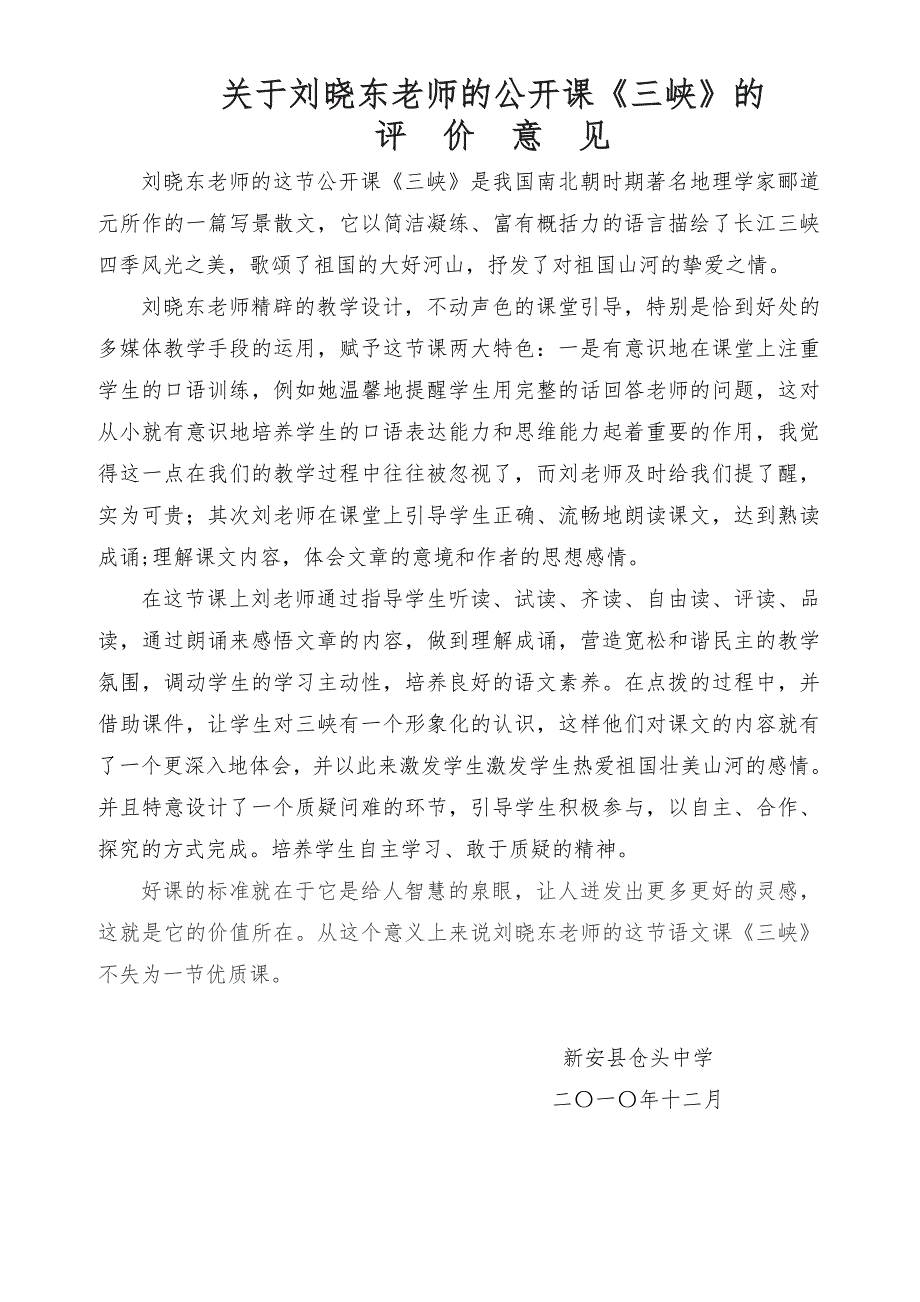 关于刘晓东老师的公开课《三峡》的
评 价 意 见
刘晓东老师的这节公开课《三峡》是我国南北朝时期著名地理学家郦道
元所作的一篇写景散文，它以简洁凝练、富有概括力的语言描绘了长江三峡
四季风光之美，歌颂了祖国的大好河山，抒发了对祖国山河的挚爱之情。
刘晓东老师精辟的教学设计，不动声色的课堂引导，特别是恰到好处的
多媒体教学手段的运用，赋予这节课两大特色：一是有意识地在课堂上注重
学生的口语训练，例如她温馨地提醒学生用完整的话回答老师的问题，这对
从小就有意识地培养学生的口语表达能力和思维能力起着重要的作用，我觉
得这一点在我们的教学过程中往往被忽视了，而刘老师及时给我们提了醒，
实为可贵；其次刘老师在课堂上引导学生正确、流畅地朗读课文，达到熟读
成诵;理解课文内容，体会文章的意境和作者的思想感情。
在这节课上刘老师通过指导学生听读、试读、齐读、自由读、评读、品
读，通过朗诵来感悟文章的内容，做到理解成诵，营造宽松和谐民主的教学
氛围，调动学生的学习主动性，培养良好的语文素养。在点拨的过程中，并
借助课件，让学生对三峡有一个形象化的认识，这样他们对课文的内容就有
了一个更深入地体会，并以此来激发学生激发学生热爱祖国壮美山河的感情。
并且特意设计了一个质疑问难的环节，引导学生积极参与，以自主、合作、
探究的方式完成。培养学生自主学习、敢于质疑的精神。
好课的标准就在于它是给人智慧的泉眼，让人迸发出更多更好的灵感，
这就是它的价值所在。从这个意义上来说刘晓东老师的这节语文课《三峡》
不失为一节优质课。
新安县仓头中学
二〇一〇年十二月